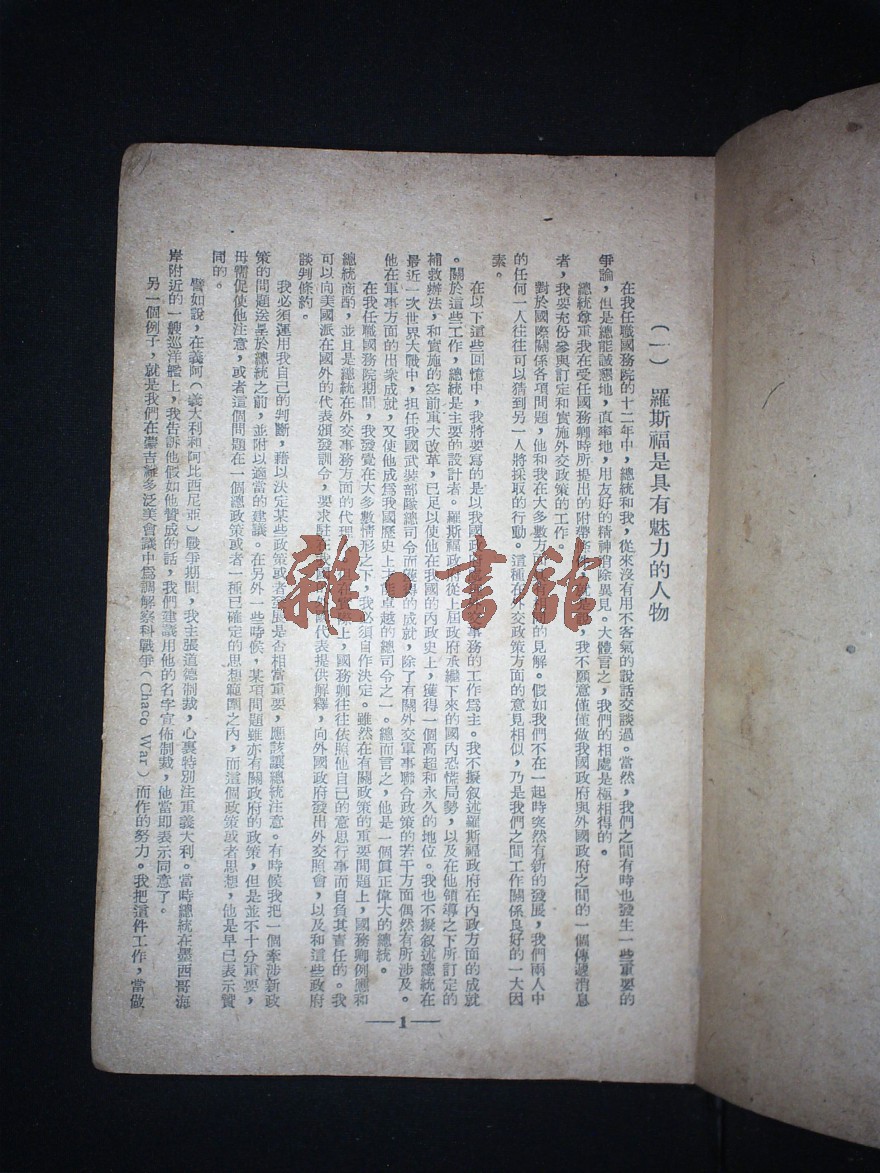 （一）　羅斯福是具有魅力的人物
在我任職國務院的十二年中，總統和我，從來沒有用不客氣的說話交談過。當然，我們之間有時也發生一些重要的
爭論，但是總能誠懇地，直率地，用友好的精神消除異見。大體言之，我們的相處是極相得的。
總統尊重我在受任國務卿時所提出的附帶
我不願意僅僅做我國政府與外國政府之間的一個傳遞消息
者，我要充份參與訂定和實施外交政策的工作。
對於國際關係各項問題，他和我在大多數方
的見解。假如我們不在一起時突然有新的發展，我們兩人中
的任何一人往往可以猜到另一人將採取的行動。這種在外交政策方面的意見相似，乃是我們之間工作關係良好的一大因
素。
在以下這些回憶中，我將要寫的是以我國政
交事務的工作爲主。我不擬叙述羅斯福政府在內政方面的成就
。關於這些工作，總統是主要的設計者。羅斯福政府從上屆政府承繼下來的國內恐慌局勢，以及在他領導之下所訂定的
補救辦法，和實施的空前重大改革，已足以使他在我國的內政史上，獲得一個高超和永久的地位。我也不擬叙述總統在
最近一次世界大戰中，担任我國武裝部隊總司令而獲得的成就，除了有關外交軍事聯合政策的若干方面偶然有所涉及。
他在軍事方面的出衆成就，又使他成爲我國歷史上
卓越的總司令之一。總而言之，他是一個眞正偉大的總統。
在我任職國務院期間，我發覺在大多數情形之下，我必須自作決定。雖然在有關政策的重要問題上，國務卿例應和
總統商酌，並且是總統在外交事務方面的代理
上，國務卿往往依照他自己的意思行事而自負其責任的。我
可以向美國派在國外的代表頒發訓令，要求駐在我國的
代表提供解釋，向外國政府發出外交照會，以及和這些政府
談判條約。
我必須運用我自己的判斷，藉以決定某些政策或者發展是否相當重要，應該讓總統注意。有時候我把一個牽涉新政
策的問題送呈於總統之前，並附以適當的建議。在另外一些時候，某項問題雖亦有關政府的政策，但是並不十分重要，
毋需促使他注意，或者這個問題在一個總政策或者一種已確定的思想範圍之內，而這個政策或者思想，他是早已表示贊
同的。
譬如說，在義阿（義大利和阿比西尼亞）戰爭期間，我主張道德制裁，心裏特別注重義大利。當時總統在墨西哥海
岸附近的一艘巡洋艦上，我告訴他假如他贊成的話，我們建議用他的名字宣佈制裁，他當即表示同意了。
另一個例子，就是我們在蒙吉維多泛美會議中爲調解察科戰爭（Chaco War）而作的努力。我把這件工作，當做
—1—
雜·書館